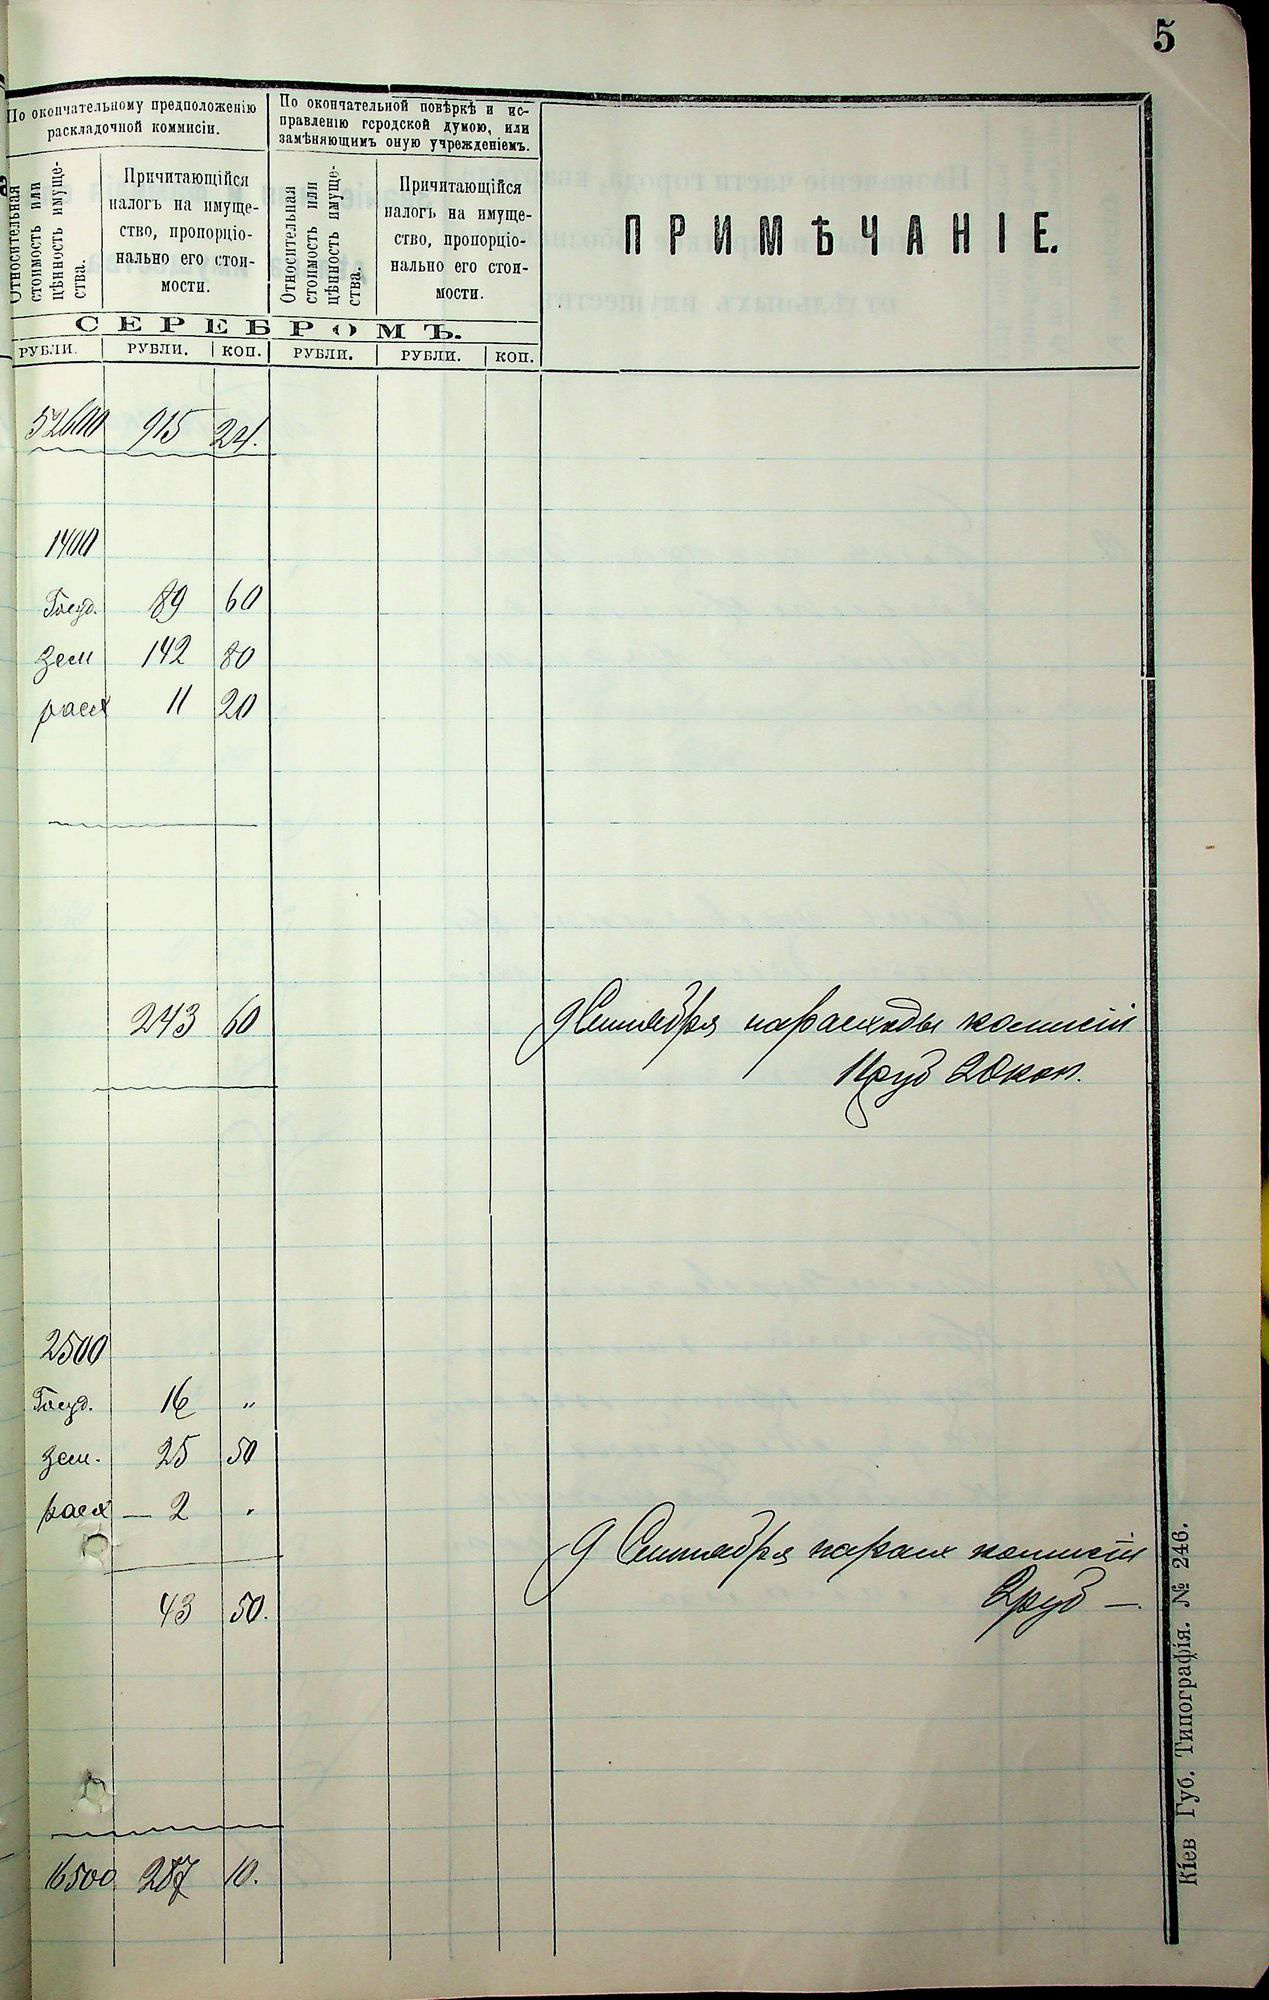 5
По окончательному предположенію
раскладочной коммисіи.
По окончательной повѣркѣ и ис-
правленію городской думою, или
замѣняющимъ оную учрежденіемъ.
Относительная
стоимость или
цѣнность имуще-
ства.
Причитающійся
налогъ на имуще-
ство, пропорціо-
нально его стои-
мости.
Относительная
стоимость или
цѣнность имуще-
ства.
Причитающійся
налогъ на имуще-
ство, пропорціо-
нально его стои-
мости.
ПРИМѢЧАНІЕ.
СЕРЕБРОМЪ.
РУБЛИ. РУБЛИ. КОП. РУБЛИ. РУБЛИ. КОП.
52600 915 24.
1400
Госуд. 89 60
зем 142 80
расх 11 20
243 60 9 Сентября на расходы комисіи
11 руб 20 коп.
2500
Госуд. 16 „
зем. 25 50
расх — 2 „
9 Сентября на расх комисіи
43 50. 2 руб —
16500 287 10.
Кіев Губ. Типографія. № 246.